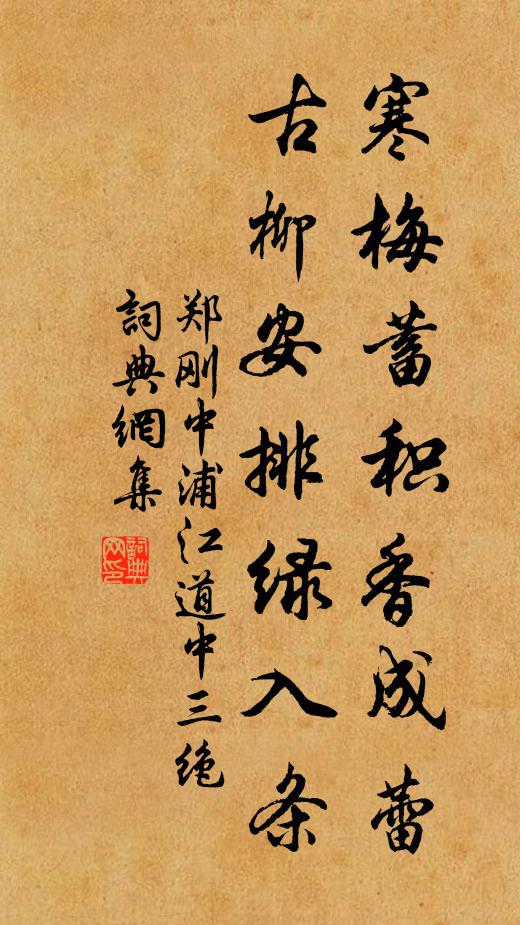 寒梅蓄积香成蕾
古柳安排绿入条
郑刚中浦江道中三绝
詞典網集
詞典网印